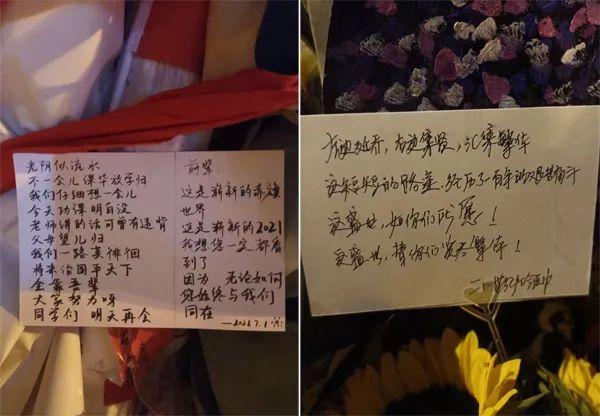 光阴似流水
不一会儿课毕放学归
我们仔细想一会儿
今天功课明白没
老师讲的话可曾有违背
父母望儿归
我们一路莫徘徊
将来治国平天下
全靠吾辈
大家努力呀
同学们 明天再会
前辈:
这是崭新的赤旗
世界
这是崭新的2021
我想您一定都看
到了
因为 无论如何
您始终与我们
同在
——2021.7.1
延乔,右边集贤,汇聚繁华
这短短的路途,经历了百年的艰苦奋斗
这盛世,如你们所愿!
这盛世,替你们